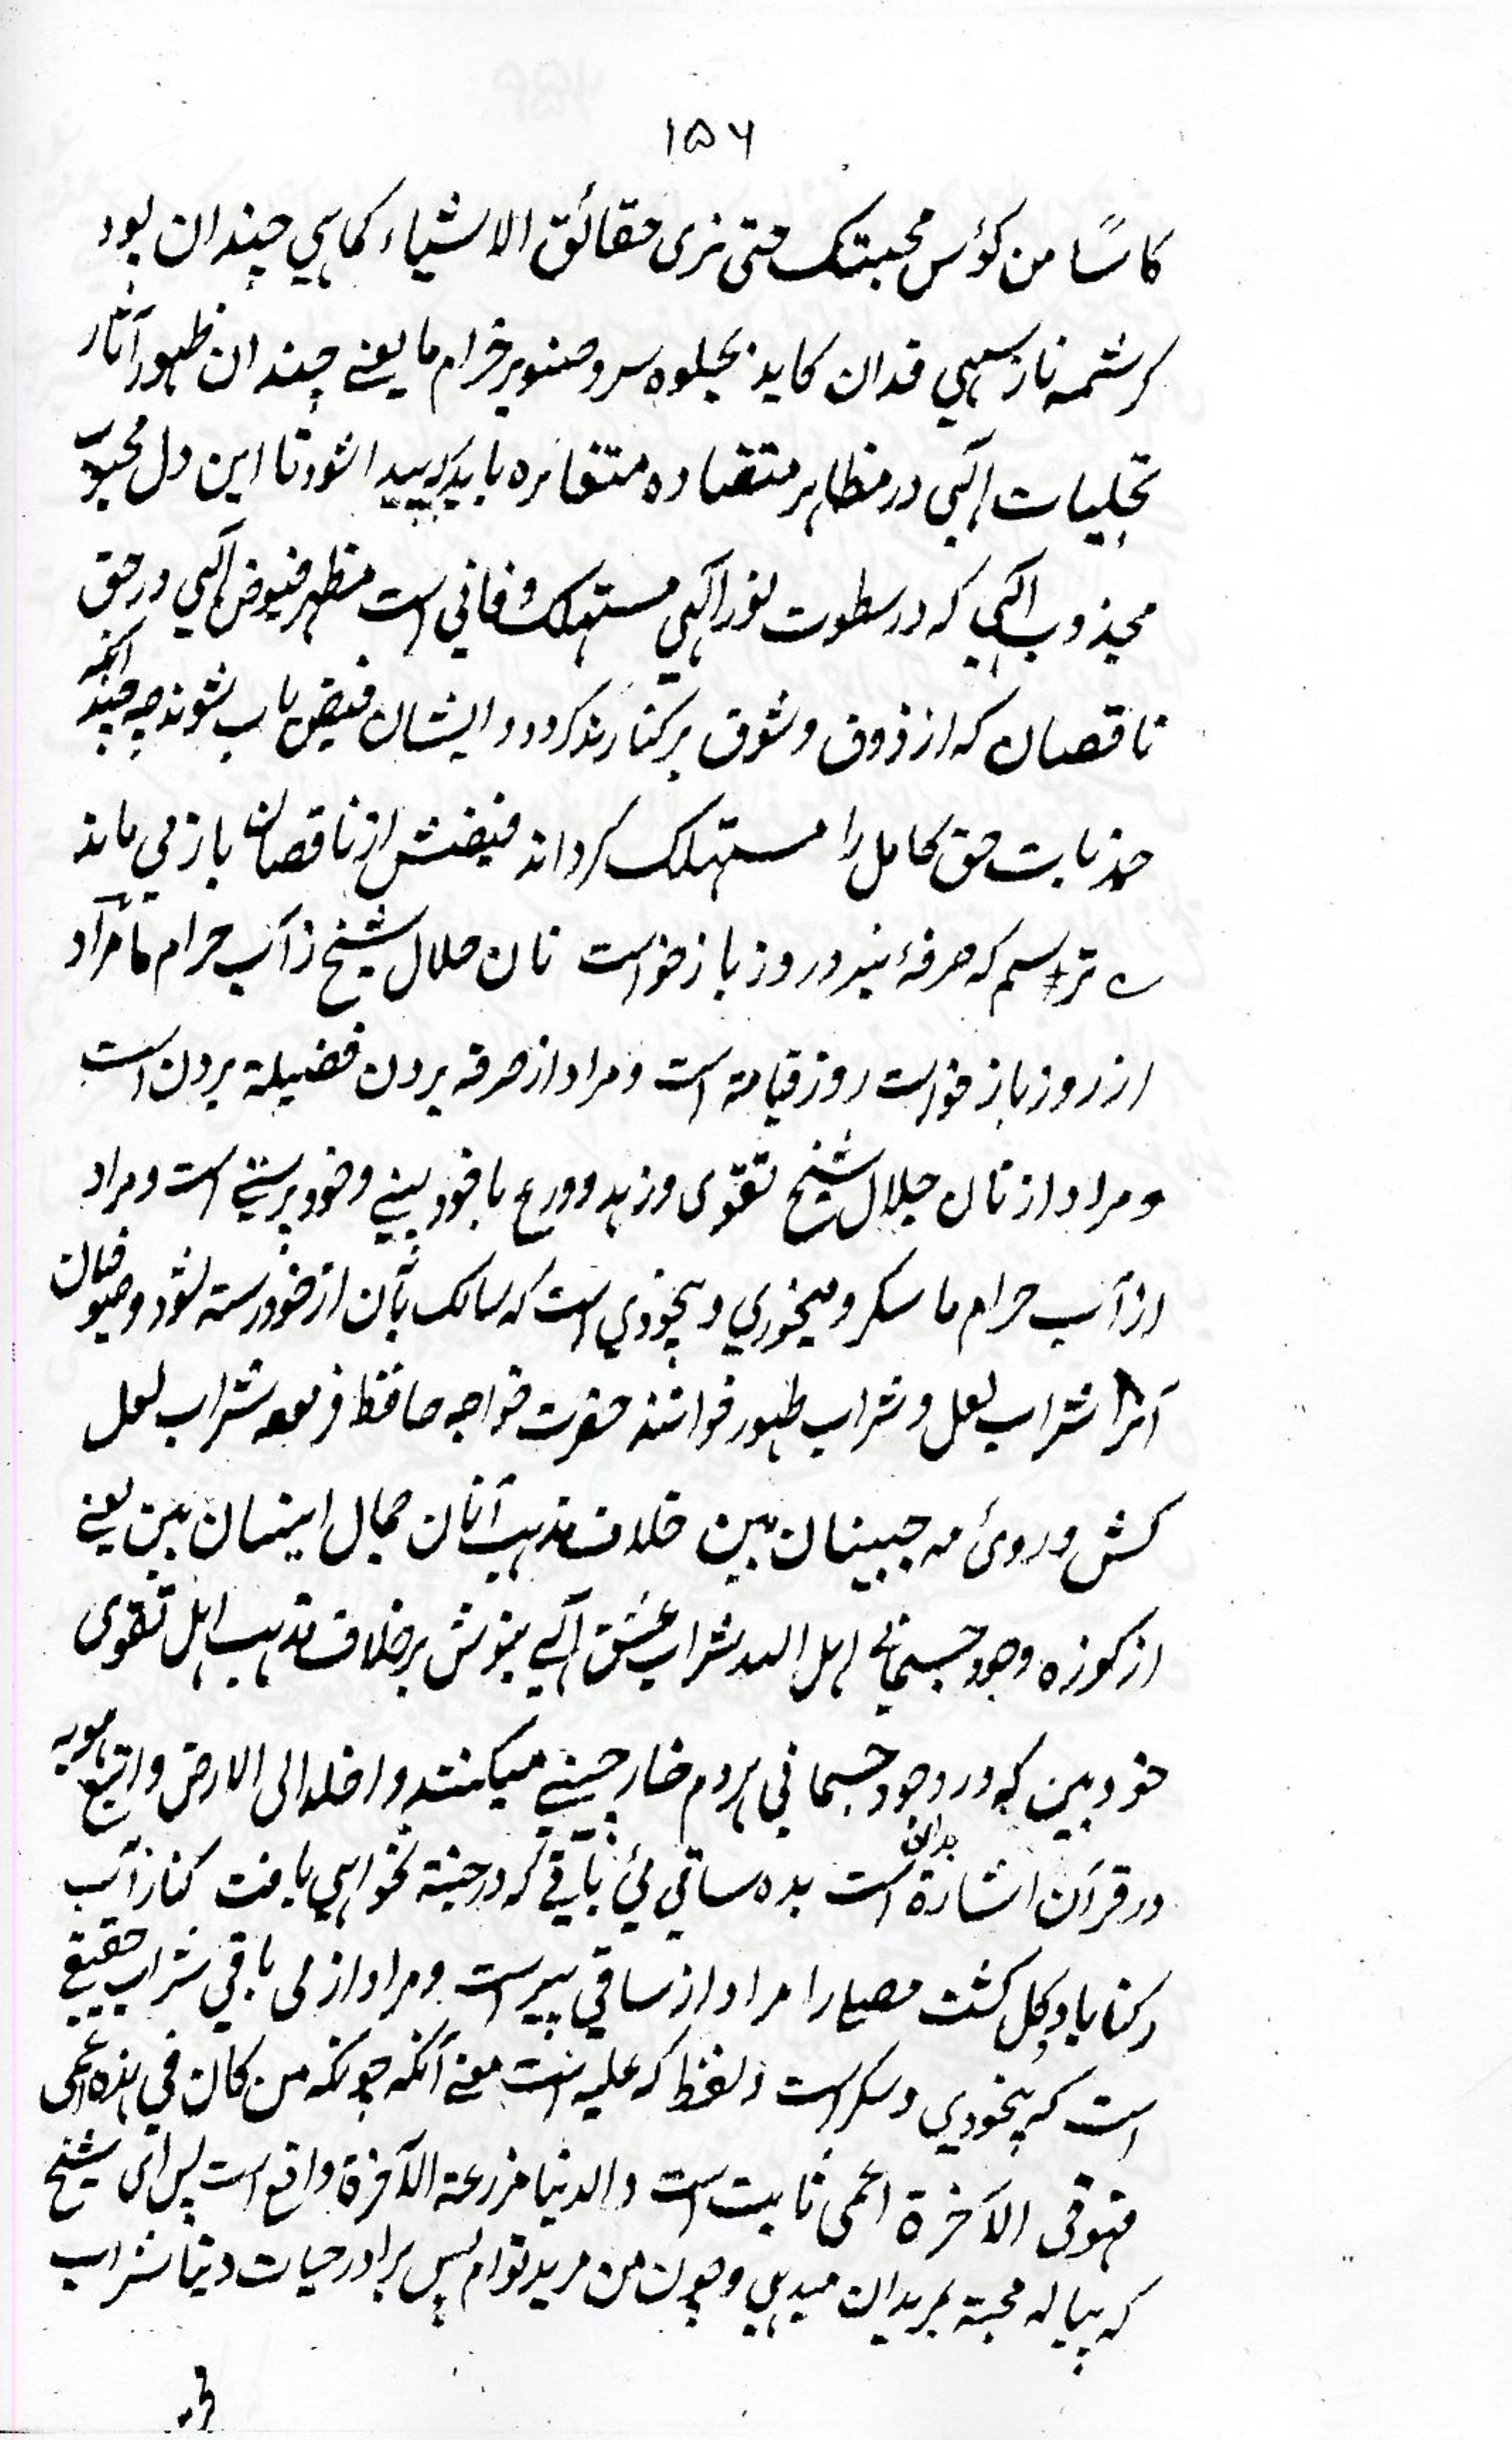 ۱۵۶
کاسًا من کؤس محبتک حتی نری حقائق الاشیاء کماهی چندان بود
کرشمه ناز سهی قدان کاید بجلوه سرو صنوبر خرام ما یعنے چندان ظهور آثار
تجلیات الهی در مظاهر متضاده متغائره باید که پیدا شود تا این دل محبوب
مجذوب الهی که در سطوت نور الهی مستهلک و فانی است مظهر فیوض الهی در حق
ناقصان که از ذوق و شوق برکنارند کردد و ایشان فیض یاب شوند چه چند انکه
جذبات حق کامل را مستهلک کرداند فیضش از ناقصان باز می ماند
ترسم که صرفهٔ نبرد روز بازخواست نان حلال شیخ ز آب حرام ما مراد
از روز بازخواست روز قیامة است و مراد از صرفه بردن فضیلة بردن است
و مراد از نان حلال شیخ تقوی و زهد و ورع با خود بینے و خود پرستے است و مراد
از آب حرام ما سکر و میخوری و بیخودی است که سالک بآن از خود رسته شود و صوفیان
آنرا شراب لعل و شراب طهور خوانند حضرت خواجه حافظ فرموده شراب لعل
کش و روئ مه جبینان بین خلاف مذهب آنان جمال اینان بین یعنے
از کوزه وجود جسمانے اهل الله شراب عشق الهے بنوش برخلاف مذهب اهل تقوی
خود بین که در وجود جسمانی هردم خار چینے میکنند و اخلد الی الارض و اتبع هویه
در قرآن اشارة بدان است بده ساقی مئ باقے که در جنة نخواهی یافت کنار آب
رکناباد و کل کشت مصلا را مراد از ساقی پیر است و مراد از می باقی شراب حقیقے
است که بیخودی و سکر است و لفظ که علیه است معنے آنکه چونکه من کان فی هذه اعمی
فهو فی الآخرة اعمی ثابت است و الدنیا مزرعة الآخرة واقع است پس ای شیخ
که پیاله محبة بمریدان میدهی و چون من مرید توام پس مرا در حیات دنیا شراب